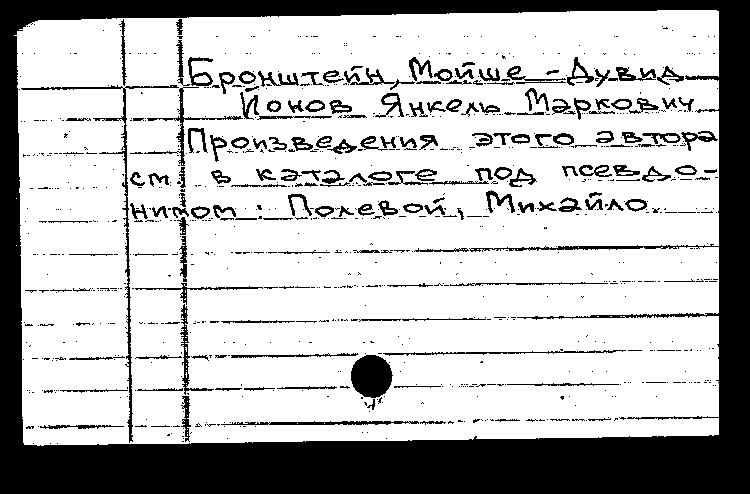 Бронштейн, Мойше - Дувид
Йонов Янкель Маркович
Произведения этого автора
см. в каталоге под псевдо-
нимом: Полевой, Михайло.